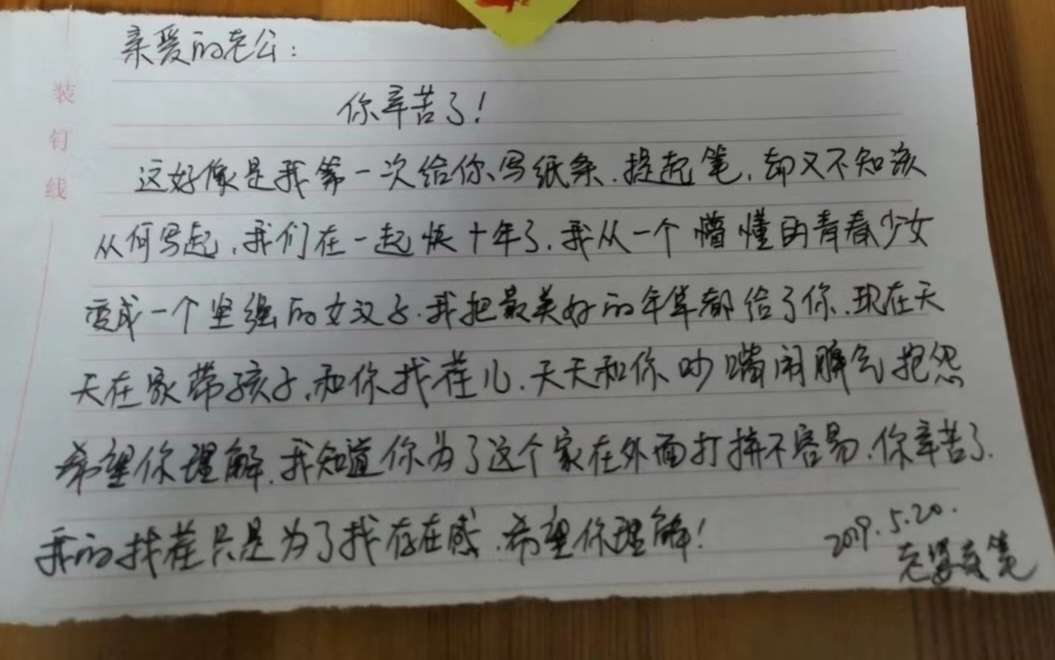 亲爱的老公：
你辛苦了！
装
钉
线
这好像是我第一次给你写纸条.提起笔,却又不知该
从何写起,我们在一起快十年了,我从一个懵懂的青春少女
变成一个坚强的女汉子.我把最美好的年华都给了你.现在天
天在家带孩子,和你找茬儿.天天和你吵嘴闹脾气抱怨
希望你理解.我知道你为了这个家在外面打拼不容易.你辛苦了.
我的找茬只是为了找存在感.希望你理解!
2019.5.20.
老婆亲笔